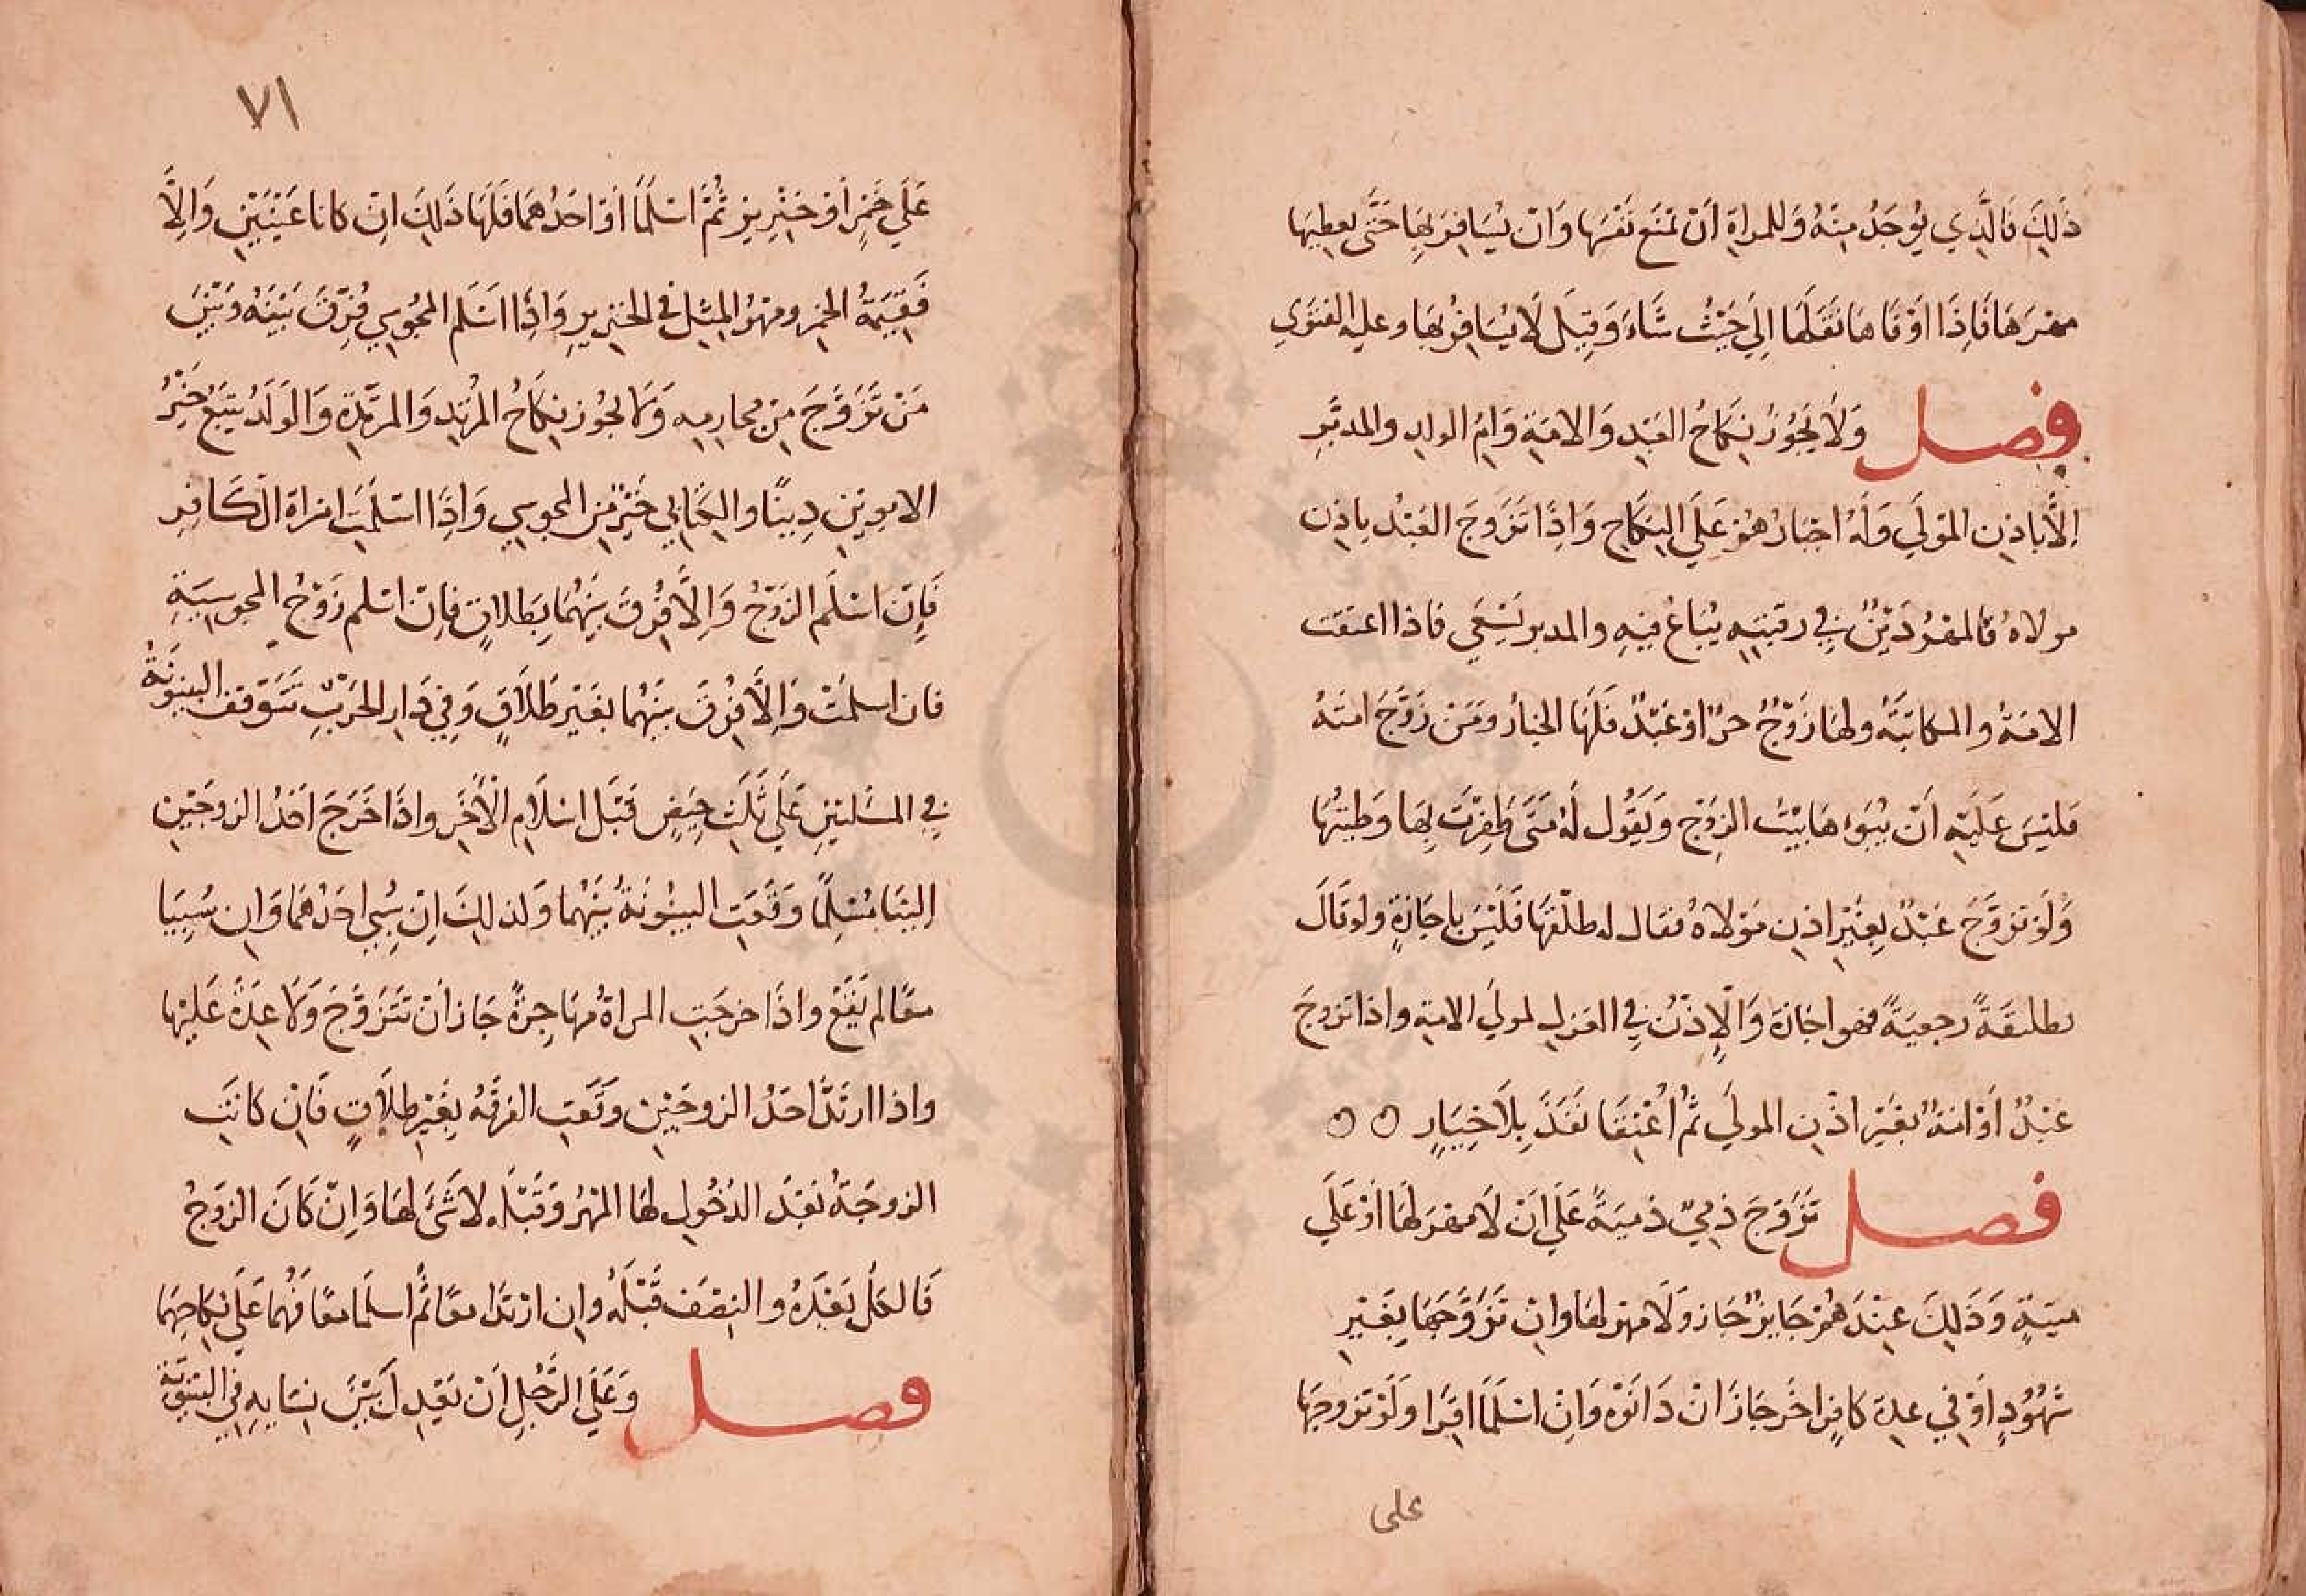 ذَلِكَ فَالَّذِي يُوجَدُ مِنْهُ وَللمراةِ اَنْ تمْنَع نَفْسَهَا وَانْ يُسَافِرَ بِهَا حَتَّى يعطِيهَا
مهرَهَا فَاِذَا اَوْفَاهَا نَقَلَهَا اِلَى حَيْثُ شَاءَ وَقِيلَ لَا يُسَافِرُ بِهَا وعليه الفتوي
فصل وَلَا يَجُوزُ نِكَاحُ العَبْدِ وَالامَةِ وَامِّ الولدِ والمدبَّرِ
اِلَّا باذنِ المَوْلَي وَلَهُ اجْبَارُهُمْ عَلَي النِكَاحِ وَاِذَا تَزَوَّجَ العَبْدُ باِذنِ
مولاهُ فَالمهْرُ دَيْنٌ فِي رقبتِهِ يُبَاعُ فِيهِ والمدبر يَسْعَي فاذا اعتقت
الامَةُ والمكاتبَةُ ولهَا زَوْجٌ حرٌّ اوْ عَبْدٌ فَلَهَا الخيارُ وَمَنْ زَوَّجَ امَتَهُ
فَليْسَ عَلَيْهِ اَنْ يُبَوِّءَهَا بَيْتَ الزَوْجِ وَيَقُول لَهُ مَتَى ظفِرْتَ بِهَا وَطِئتَهَا
وَلَوْ تزوَّجَ عَبْدٌ بِغَيْرِ اذنِ مَوْلَاهُ فقال له طلّقهَا فَلَيْسَ باِجَازَةٍ ولو قَالَ
تطليقَةً رجعيَةً فهو اجَازَة وَالْاِذْنُ فِي العَزلِ لمولَي الامةِ واذا تزوجَ
عَبْدٌ اَوْ امَةٌ بغَيْرِ اذْنِ المولَي ثُمَّ اُعْتِقَا نَفَذَ بِلَا خِيَارٍ ه ه
فصل تَزَوَّجَ ذِمِيٌّ ذميَةً عَلَي اَنْ لَا مهرَ لهَا اوْ عَلَي
ميتَةٍ وَذَلِكَ عِنْدَهُمْ جَايزٌ جَازَ وَلَا مهرَ لهَا وَاِنْ تَزَوَّجَهَا بِغَيْرِ
شُهُودٍ اَوْ فِي عدةِ كَافِرٍ اخَرَ جَازَ انْ دَانَوْهُ وَاِنْ اسْلَمَا اقِرَّا وَلَوْ تزوجهَا
على
٧١
عَلَي خَمْرٍ اَوْ خِنْزِيرٍ ثُمَّ اسْلَمَا اَوْ احَدُهمَا فَلَهَا ذَلِكَ انْ كانا عَيْنَيْنِ وَاِلَّا
فَقِيمَةُ الخمْرِ ومَهْرُ المِثْلِ فِي الخنزِيرِ وَاِذَا اسْلَم المجُوسِي فُرِّقَ بَيْنَهُ وَبَيْنَ
مَنْ تَزَوَّجَ مِنْ محارِمِهِ وَلَا يجُوزُ نِكَاحُ المُرْتدِ وَالمرتدةِ وَالوَلَدُ يتبَعُ خَيْرُ
الابوينِ دِينًا والكِتَابِي خَيْرٌ مِنَ المجوسِي وَاِذَا اسْلَمَتِ امْرَاة الْكَافِرِ
فَاِنْ اسْلَم الزَوْجُ وَاِلَّا فُرِقَ بَيْنَهُمَا بِطَلاقٍ فاِنْ اسْلم زَوْجُ المجوسيَةِ
فان اسلمَتْ وَاِلَّا فُرِقَ بَيْنَهُمَا بغَيْرِ طَلَاقٍ وَفِي دَارِ الحَرْبِ تَتَوَقف البينونَةُ
فِي المسْلَتينِ عَلَي ثلثِ حِيَضٍ قَبْلَ اسْلَامِ الْاخَرِ واذَا خَرَجَ احَدُ الزوجَيْنِ
اِلينَا مُسْلِمًا وَقَعَتِ البيْنُونَةُ بَيْنَهُمَا وَلذلِكَ اِنْ سُبِي احَدُهُمَا وَان سُبِيَا
معًا لم يَقَعْ واذَا خرجَتِ المراةُ مُهَاجِرةً جَازَ اَنْ تتَزَوَّجَ وَلَا عِدَةَ عَلَيْهَا
واذا ارتَدَّ احَدُ الزوجَيْنِ وَقَعَتِ الفرقَةُ بِغَيْرِ طلَاقٍ فَاِنْ كانَتِ
الزوجَةُ بَعْدَ الدُخُولِ لهَا المَهْرُ وَقَبْلَهُ لا شَئَ لهَا وَاِنْ كَانَ الزَوجُ
فَالكل بَعْدَهُ والنِصْفُ قَبْلَهُ وان ارْتدَّا معًا ثُمَّ اسلمَا معًا فَهُمَا عَلَي نِكَاحِهِمَا
فصل وَعَلَي الرَّجُلِ اَنْ يَعْدِلَ بَيْنَ نِسَايهِ فِي البيتوتَة